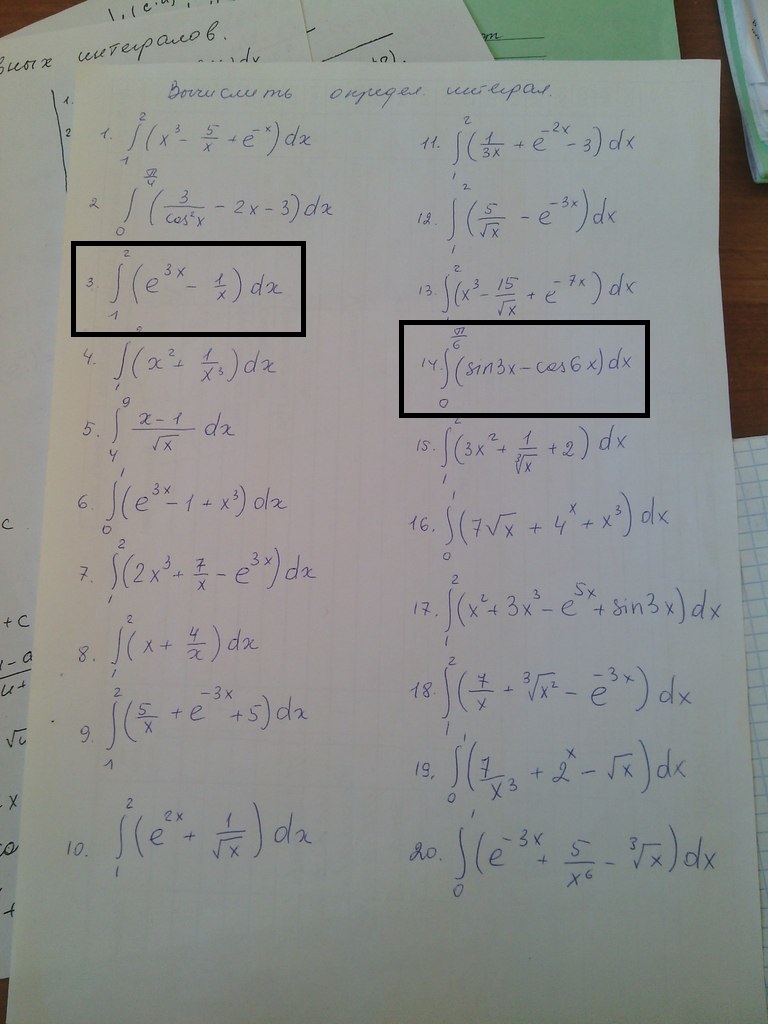 вных интегралов.
Вычислить определ. интеграл.
1. ∫₁² (x³ - 5/x + e^(-x)) dx
2 ∫₀^(π/4) (3/cos²x - 2x - 3) dx
3. ∫₁² (e^(3x) - 1/x) dx
4. ∫₁ (x² + 1/x³) dx
5. ∫₄⁹ (x-1)/√x dx
6. ∫₀¹ (e^(3x) - 1 + x³) dx
7. ∫₁² (2x³ + 7/x - e^(3x)) dx
8. ∫₁² (x + 4/x) dx
9. ∫₁² (5/x + e^(-3x) + 5) dx
10. ∫₁² (e^(2x) + 1/√x) dx
11. ∫₁² (1/3x + e^(-2x) - 3) dx
12. ∫₁² (5/√x - e^(-3x)) dx
13. ∫₁² (x³ - 15/√x + e^(-7x)) dx
14. ∫₀^(π/6) (sin3x - cos6x) dx
15. ∫₁² (3x² + 1/∛x + 2) dx
16. ∫₀¹ (7√x + 4^x + x³) dx
17. ∫₁² (x² + 3x³ - e^(5x) + sin3x) dx
18. ∫₁² (7/x + ∛x² - e^(-3x)) dx
19. ∫₀¹ (7/x³ + 2^x - √x) dx
20. ∫₀¹ (e^(-3x) + 5/x⁶ - ∛x) dx